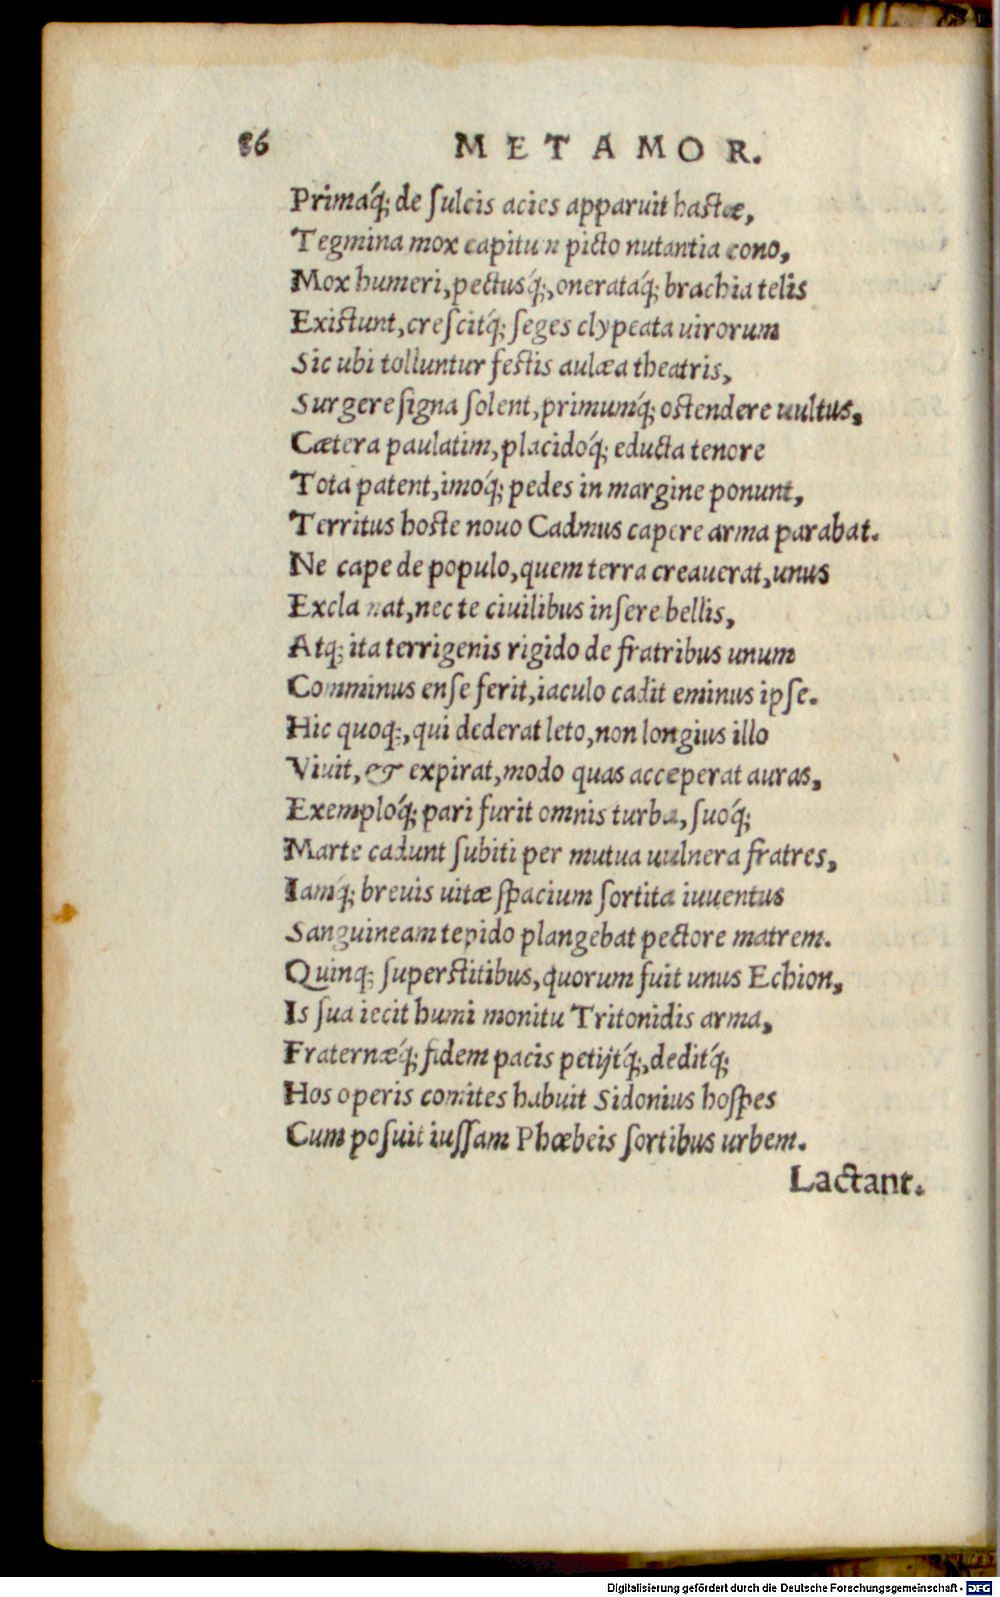 86 METAMOR.
Primaq́; de ſulcis acies apparuit haſtæ,
Tegmina mox capitum picto nutantia cono,
Mox humeri, pectusq́;, onerataq́; brachia telis
Exiſtunt, creſcitq́; ſeges clypeata uirorum
Sic ubi tolluntur feſtis aulæa theatris,
Surgere ſigna ſolent, primumq́; oſtendere uultus,
Cætera paulatim, placidoq́; educta tenore
Tota patent, imoq́; pedes in margine ponunt,
Territus hoſte nouo Cadmus capere arma parabat.
Ne cape de populo, quem terra creauerat, unus
Exclamat, nec te ciuilibus inſere bellis,
Atq; ita terrigenis rigido de fratribus unum
Comminus enſe ferit, iaculo cadit eminus ipſe.
Hic quoq;, qui dederat leto, non longius illo
Viuit, & expirat, modo quas acceperat auras,
Exemploq́; pari furit omnis turba, ſuoq́;
Marte cadunt ſubiti per mutua uulnera fratres,
Iamq́; breuis uitæ ſpacium ſortita iuuentus
Sanguineam tepido plangebat pectore matrem.
Quinq; ſuperſtitibus, quorum fuit unus Echion,
Is ſua iecit humi monitu Tritonidis arma,
Fraternæq́; fidem pacis petijtq́;, deditq́;
Hos operis comites habuit Sidonius hoſpes
Cum poſuit iuſſam Phœbeis ſortibus urbem.
Lactant.
Digitalisierung gefördert durch die Deutsche Forschungsgemeinschaft - DFG